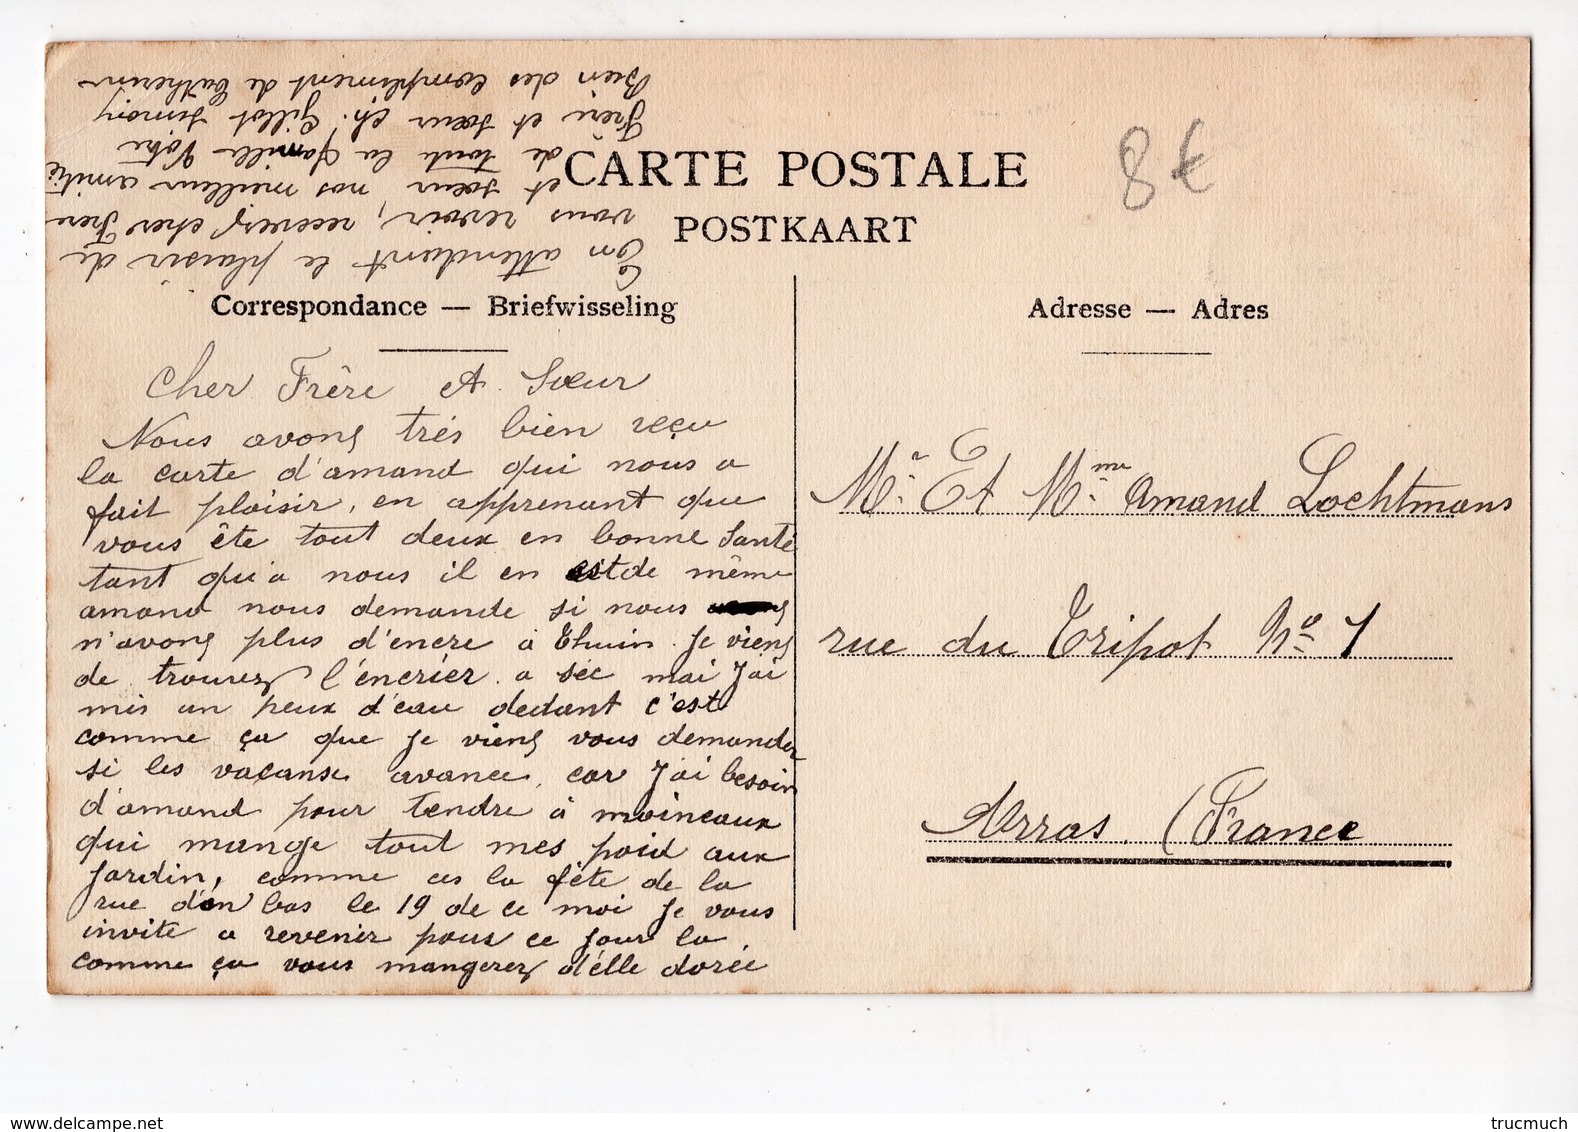 CARTE POSTALE
POSTKAART
8€
Correspondance — Briefwisseling
Adresse — Adres
Cher Frère et Sœur
Nous avons très bien reçu
la carte d'amand qui nous a
fait plaisir, en apprenant que
vous ête tout deux en bonne Santé
tant qu'a nous il en est de même
amand nous demande si nous
n'avons plus d'encre à Thuin. Je viens
de trouver l'éncriér a séc mai J'ai
mis un peux d'eau dedant c'est
comme ça que Je viens vous demander
si les vacanse avance, car J'ai besoin
d'amand pour tendre à moineaux
qui mange tout mes poid aux
Jardin, comme ces la fête de la
rue d'en bas le 19 de ce moi Je vous
invite a revenir pour ce Jour la.
comme ça vous mangerez délle dorée
En attendant le plaisir de
vous revoir, recevez cher Frère
et sœur nos meilleur amitié
de toute la famille Votre
Frère et sœur Ch. Gillot Simon
Bien des compliment de Catherine
Mr. Et Mme Amand Lochtmans
rue du Tripot No 1
Arras. (France
delcampe.net
trucmuch